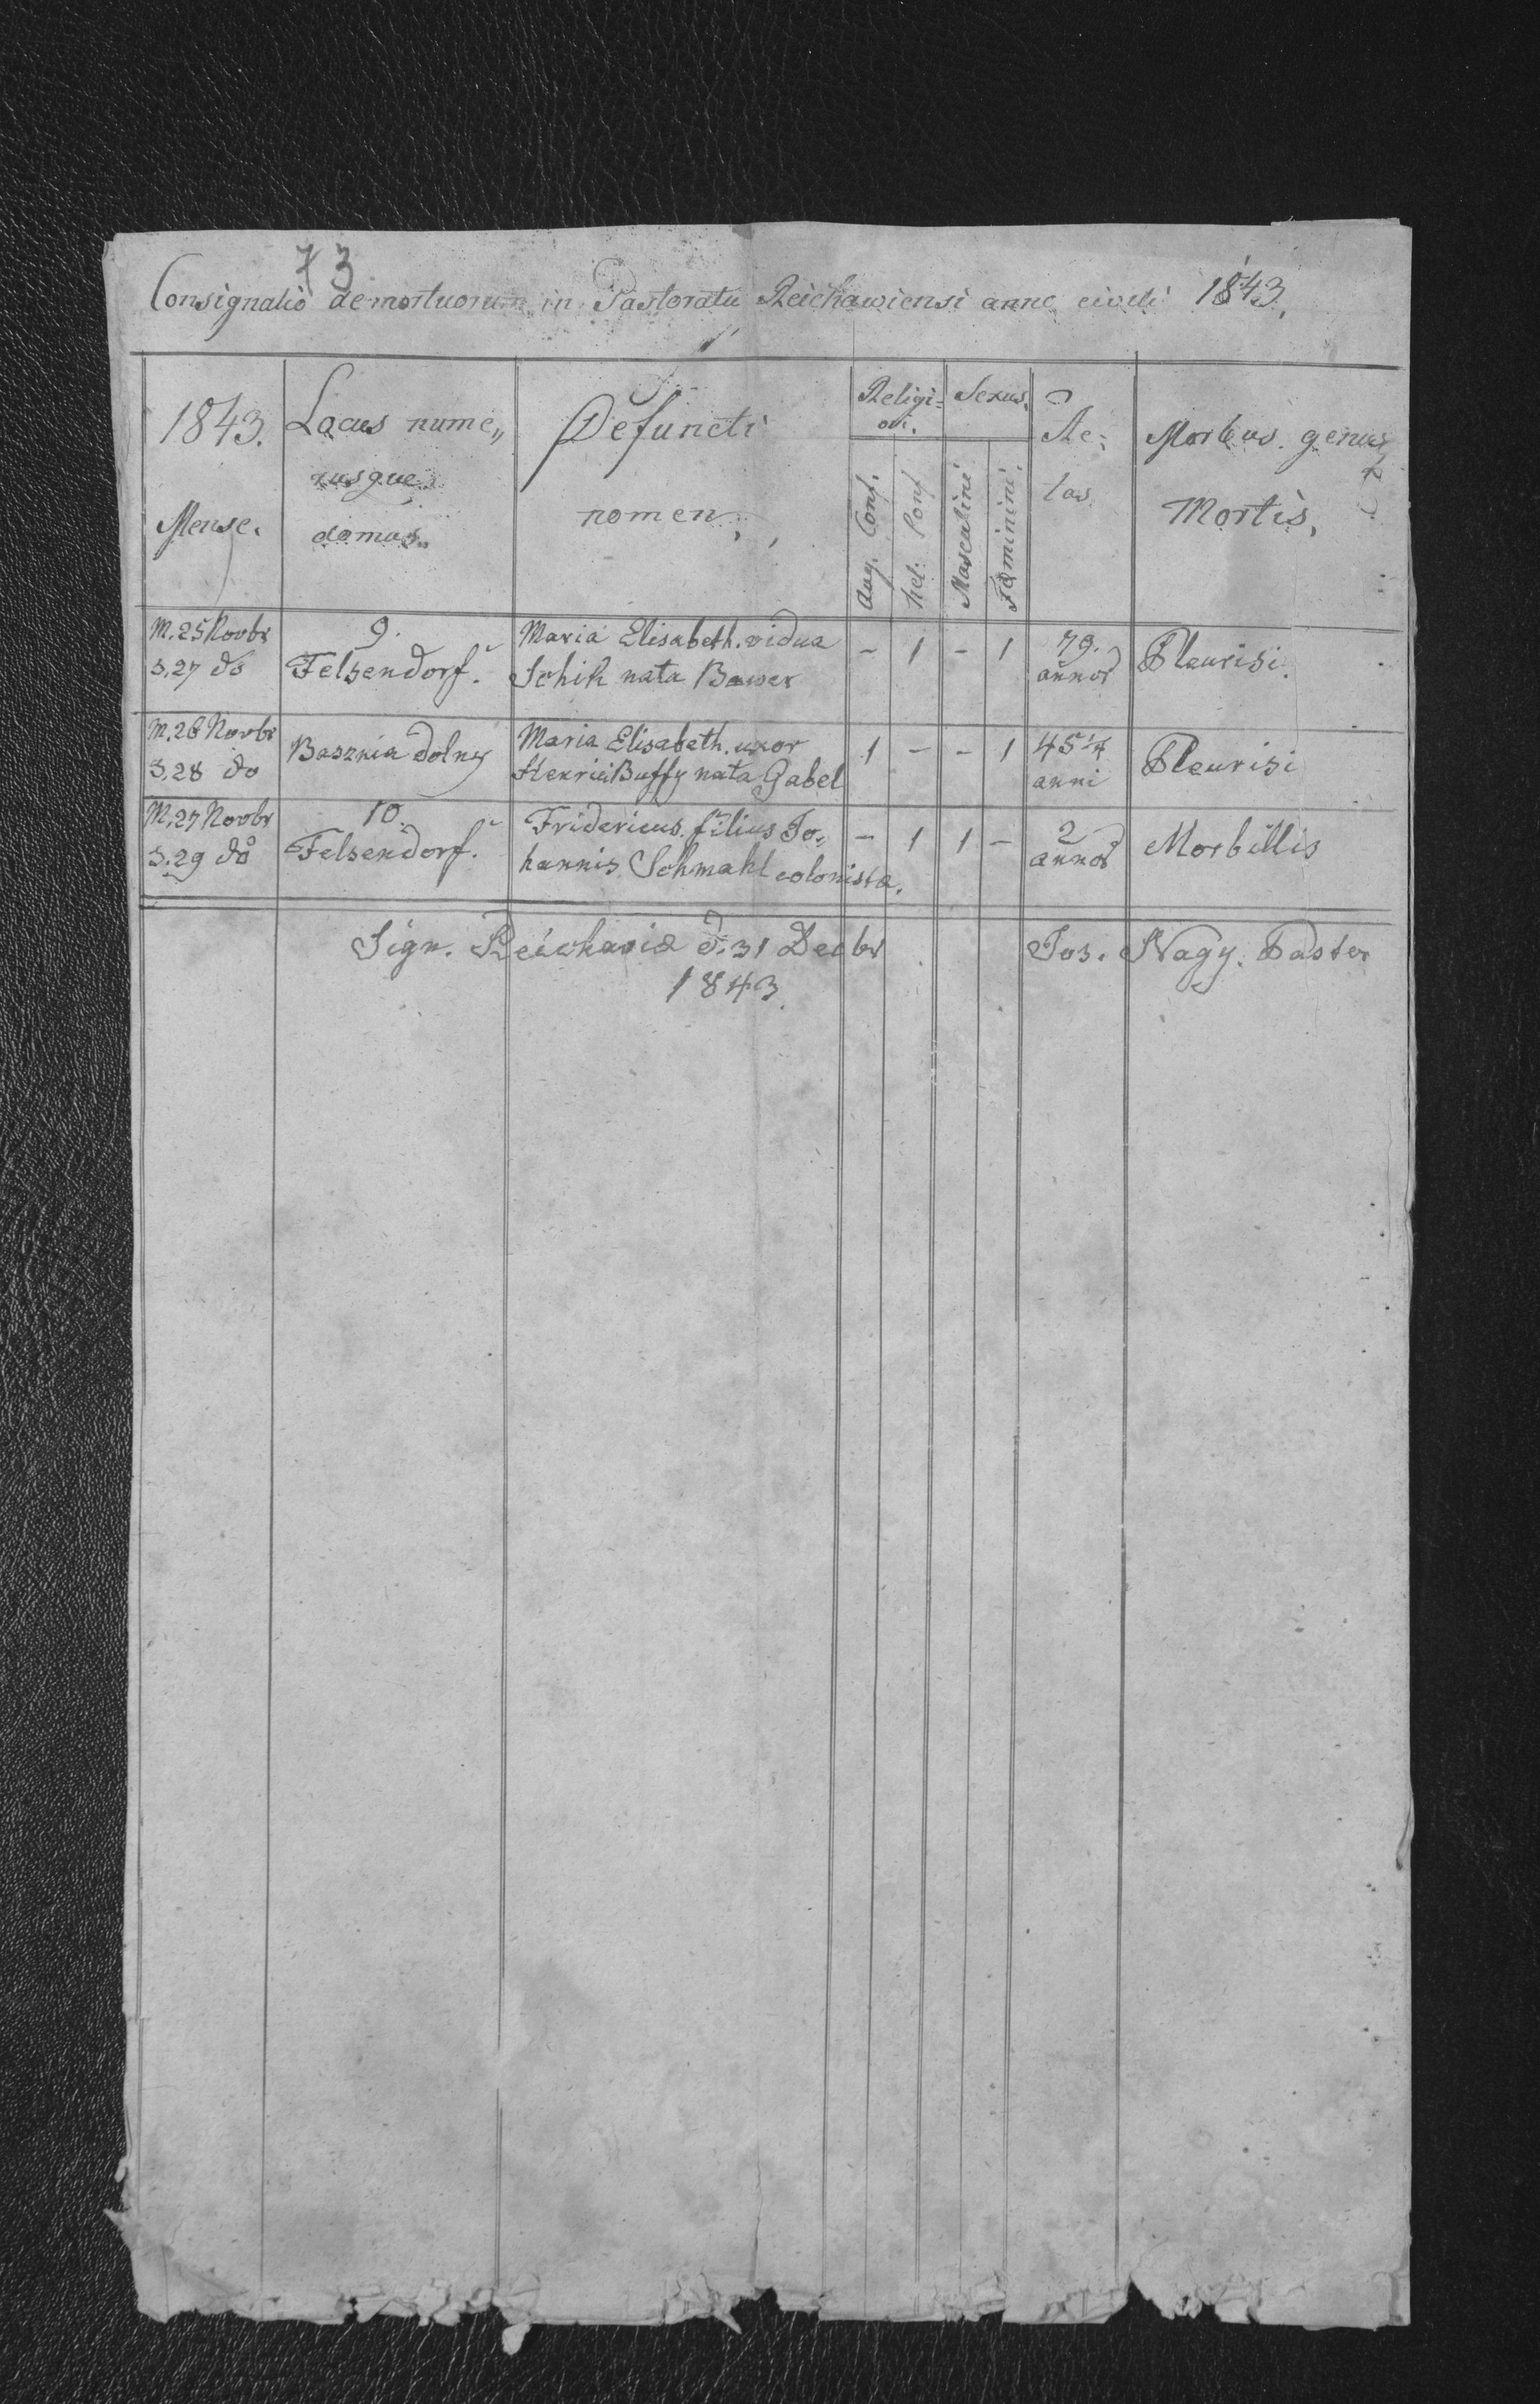 73
Consignatio demortuorum in Pastoratu Reichawiensi anno civili 1843.
1843. Mense.
Locus nume„ rusque domus.
Defuncti nomen.
Religi- oni.
Aug. Conf.
hel. Conf
Sexus.
Masculini
Feminini.
Ae- tas
Morbus. genus Mortis.
M. 25 Novbr 9. Maria Elisabeth. vidua - 1 - 1 79. Pleurisi.
S. 27 do Felsendorf. Schik nata Bauer annor
M. 26 Novbr Basznia dolny Maria Elisabeth. uxor 1 - - 1 45 1/4 Pleurisi
S. 28 do Henrici Buffy nata Gabel anni
M. 27 Novbr 10. Fridericus. filius Jo„ - 1 1 - 2 Morbillis
S. 29 do Felsendorf. hannis Schmahl colonista. annor
Sign. Reichavia d. 31 Decbr Jos. Nagy. Pastor
1843.